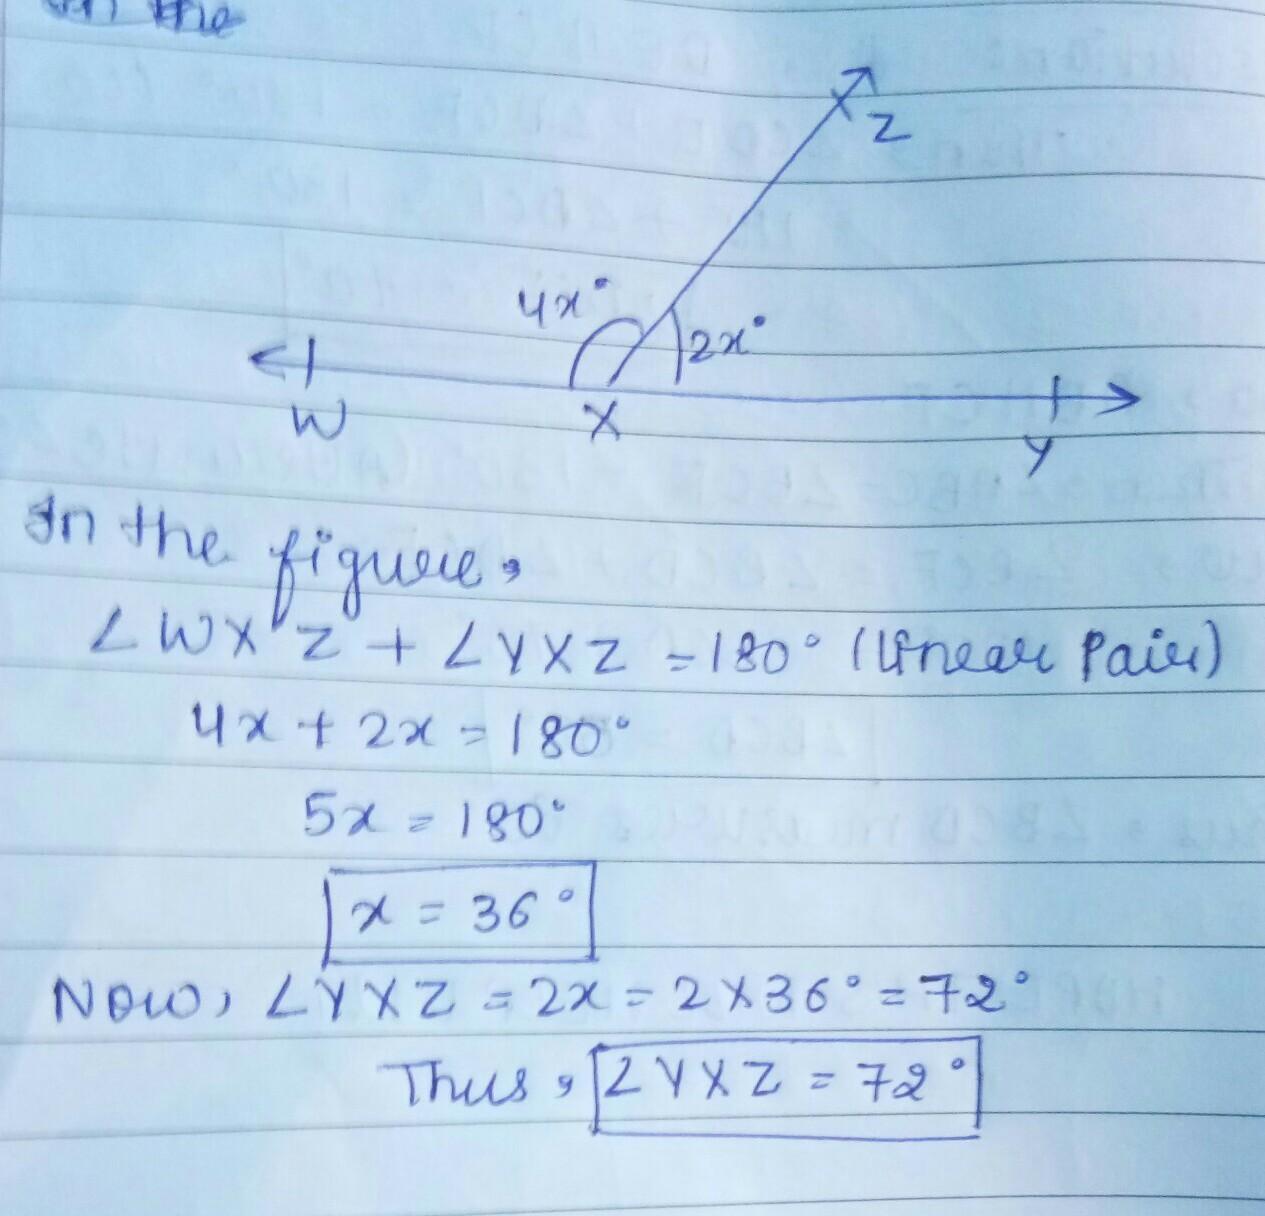 In the
Z
4x°
2x°
W X Y
In the figure,
∠WXZ + ∠YXZ = 180° (linear Pair)
4x + 2x = 180°
5x = 180°
x = 36°
Now, ∠YXZ = 2x = 2 X 36° = 72°
Thus, ∠YXZ = 72°